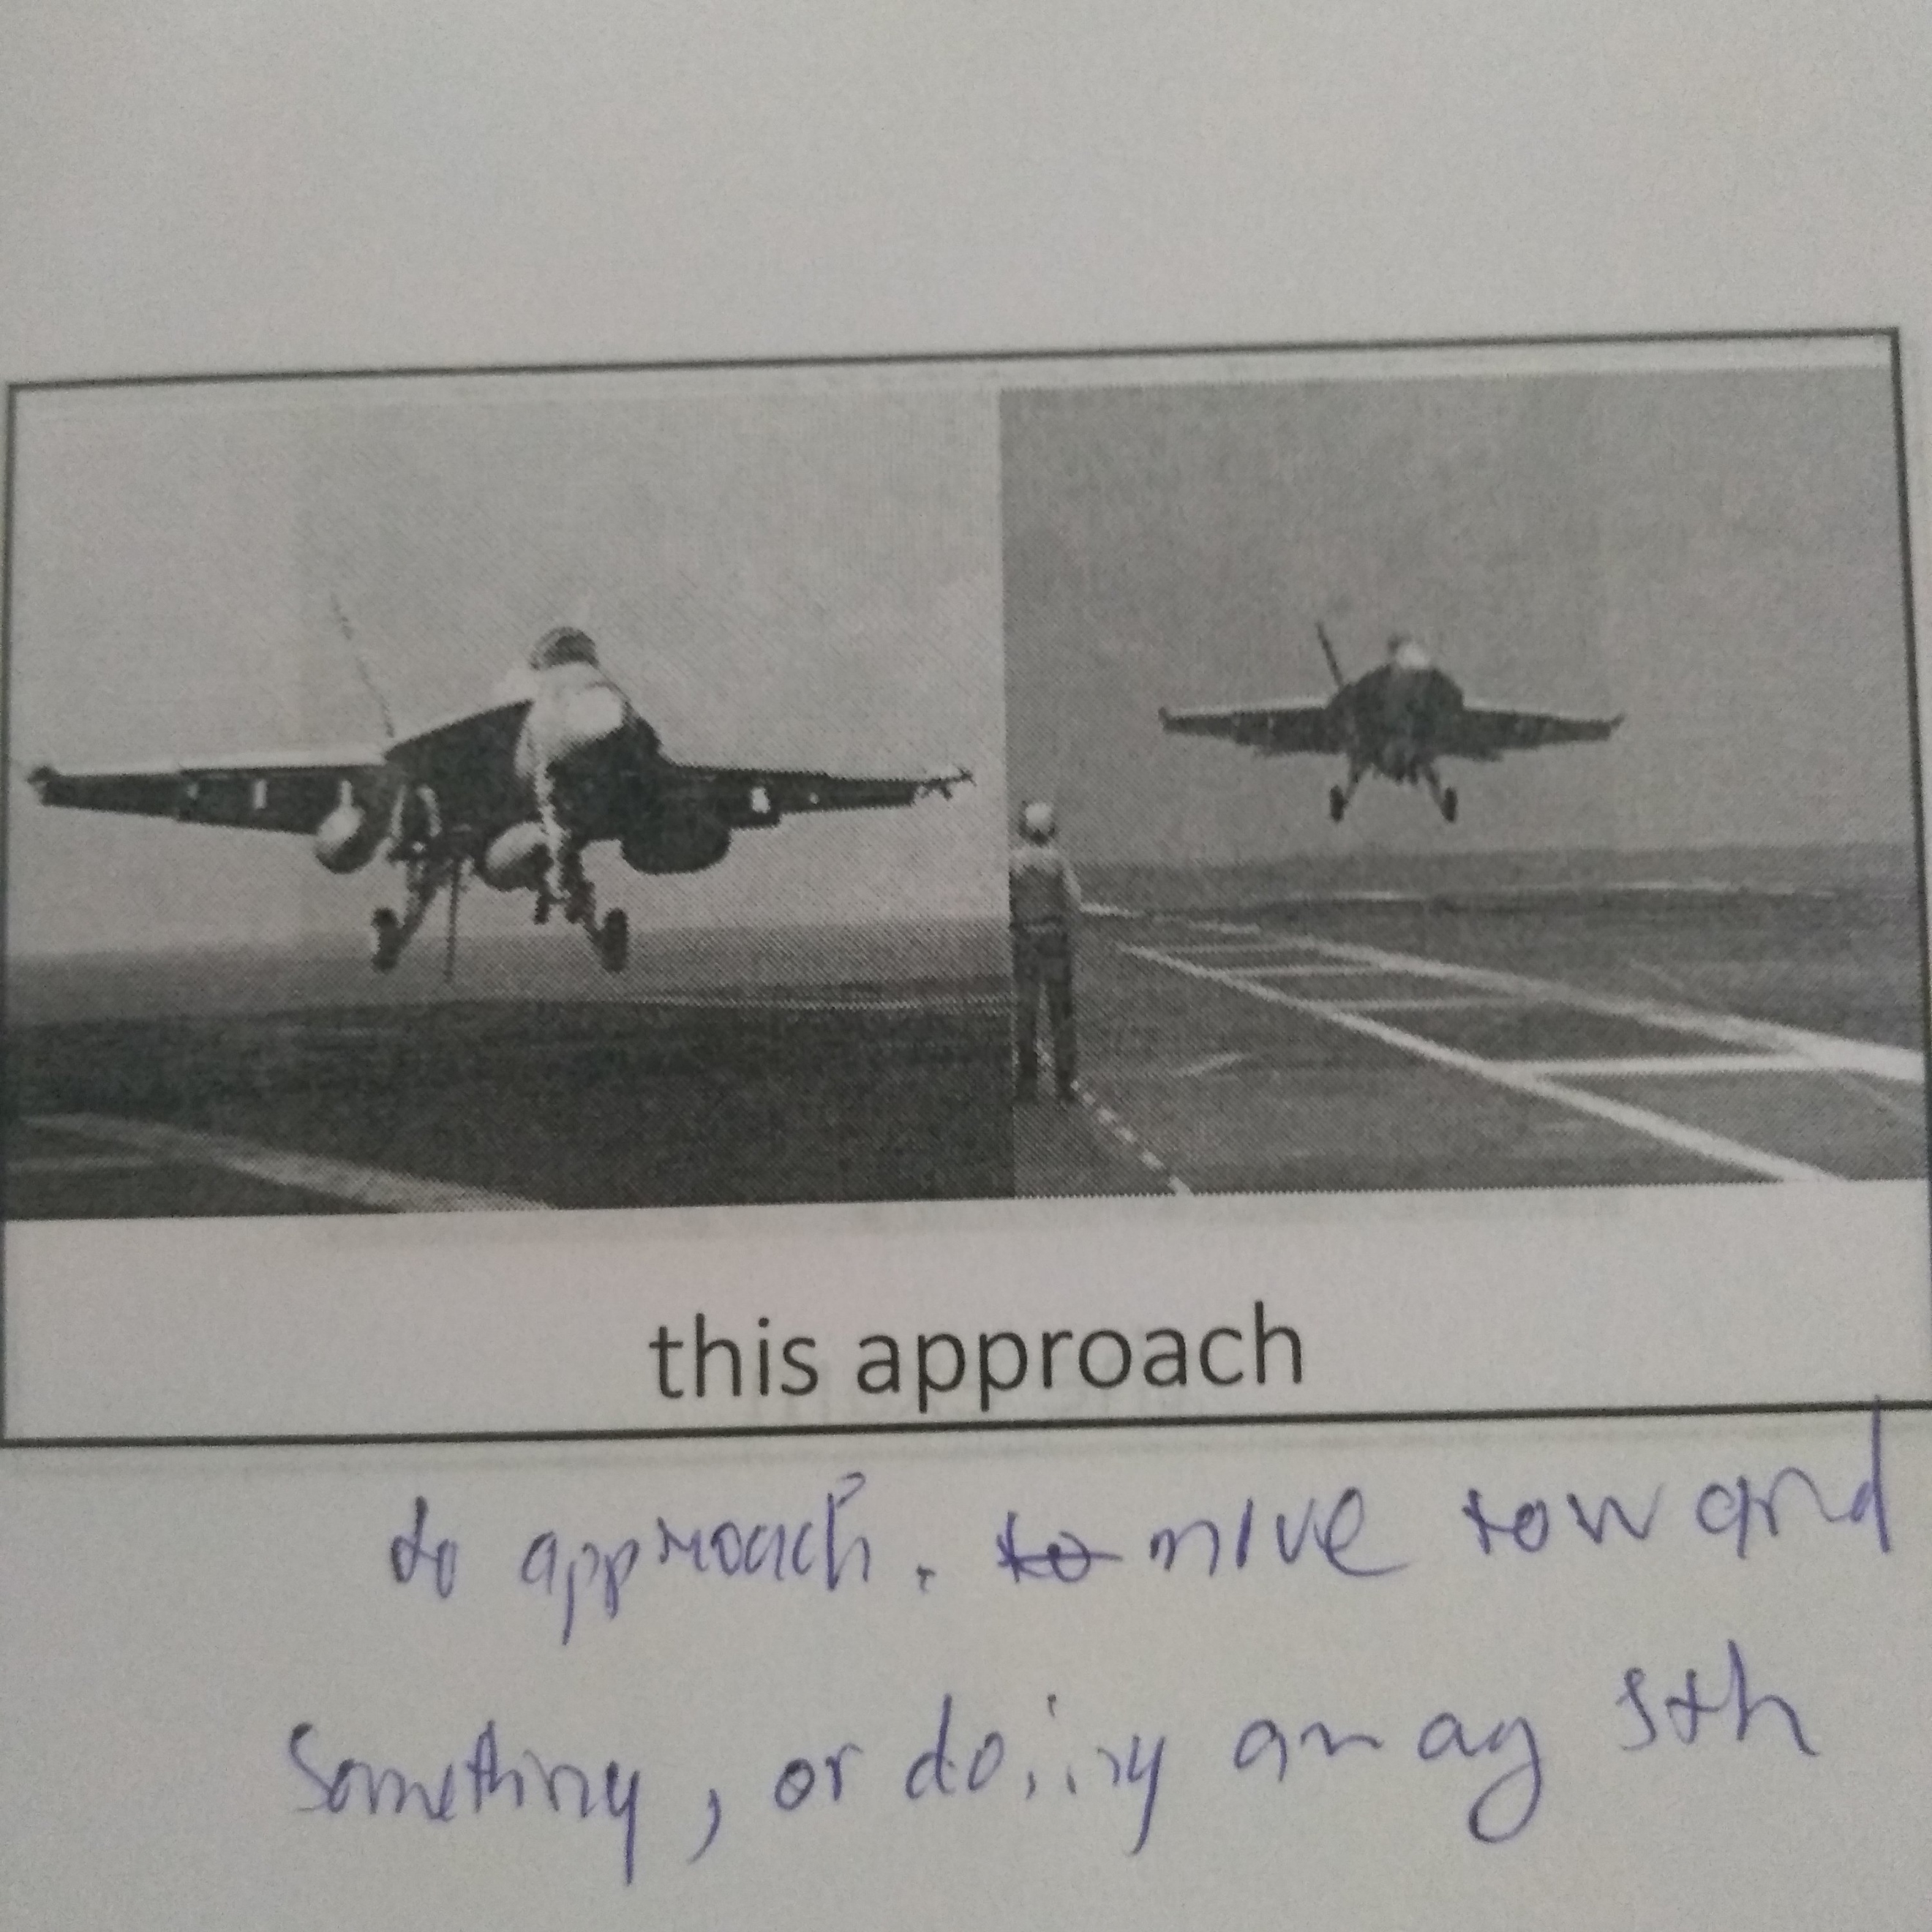 this approach
to approach. to move toward
Something, or doing an ay sth